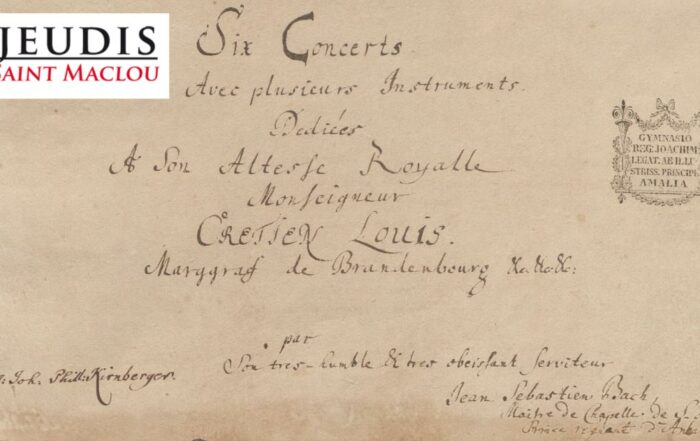 JEUDIS
SAINT MACLOU
Six Concerts
Avec plusieurs Instruments.
Dediées
A Son Altesse Royalle
Monseigneur
CRETIEN LOUIS.
Marggraf de Brandenbourg &c.&c.&c:
par
Son tres-humble & tres obeissant serviteur
Jean Sebastien Bach,
Maitre de Chapelle de S.
Prince regnant d'An
Joh. Phil. Kirnberger.
GYMNASIO
REG. JOACHIM
LEGAT. AB ILLU
STRISS. PRINCIPE
AMALIA